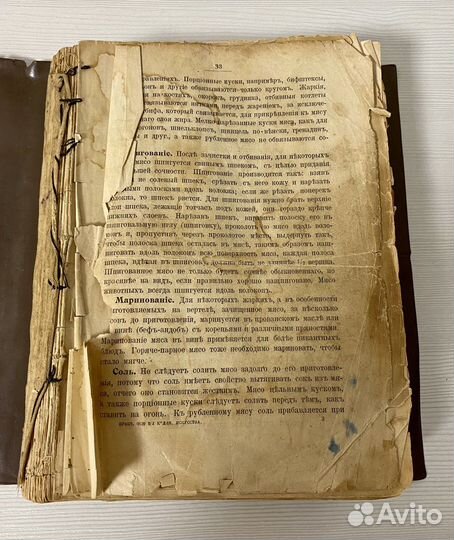 33
Порціонные куски, напримѣръ, бифштексы,
и другіе обвязываются только кругомъ. Жаркія,
на костяхъ, окорокъ, грудинка, отбивныя котлеты
нитками передъ жареніемъ, за исключе-
который связывается, для прикрѣпленія къ мясу
слоя жира. Мелко нарѣзанные куски мяса, какъ для
шнельклопсъ, шницель по-вѣнски, гренадинъ,
и друг., а также рубленое мясо не обвязываются со-
Послѣ зачистки и отбиванія, для нѣкоторыхъ
мясо шпигуется свинымъ шпекомъ, съ цѣлью приданія
сочности. Шпигованіе производится такъ: взявъ
соленый шпекъ, срѣзать съ него кожу и нарѣзать
полосками вдоль волоконъ; если же рѣзать поперекъ
то шпекъ рвется. Для шпигованія нужно брать верхніе
шпека, лежащіе тотчасъ подъ кожей, они гораздо крѣпче
нижнихъ слоевъ. Нарѣзавъ шпекъ, вправить полоску его въ
шпиговальную иглу (шпиговку), проколоть мясо вдоль волок-
онъ и, пропустивъ черезъ проколотое мѣсто, выдернуть такъ,
чтобы полоска шпека осталась въ мясѣ, такимъ образомъ наш-
пиговать вдоль волоконъ всю поверхность мяса, каждая полоса
шпека, вдѣтая въ шпиговку, должна быть не длиннѣе ½ вершка.
Шпигованное мясо не только будетъ сочнѣе обыкновеннаго, но
красивѣе на видъ, если правильно хорошо нашпиговано. Мясо
животныхъ всегда шпигуется вдоль волоконъ.
Маринованіе. Для нѣкоторыхъ жаркихъ, а въ особенности
приготовляемыхъ на вертелѣ, зачищенное мясо, за нѣсколько
часовъ до приготовленія, маринуется въ прованскомъ маслѣ или
винѣ (бефъ-англэ) съ кореньями и различными пряностями.
Маринованіе мяса въ винѣ примѣняется для болѣе пикантныхъ
блюдъ. Горяче-парное мясо тоже необходимо мариновать, чтобы
стало мягче.
Соль. Не слѣдуетъ солить мясо задолго до его приготовле-
нія, потому что соль имѣетъ свойство вытягивать сокъ изъ мя-
са, отчего оно становится жесткимъ. Мясо цѣльнымъ кускомъ,
а также порціонные куски слѣдуетъ солить передъ тѣмъ, какъ
ставить на огонь. Къ рубленному мясу соль прибавляется при
3
Avito